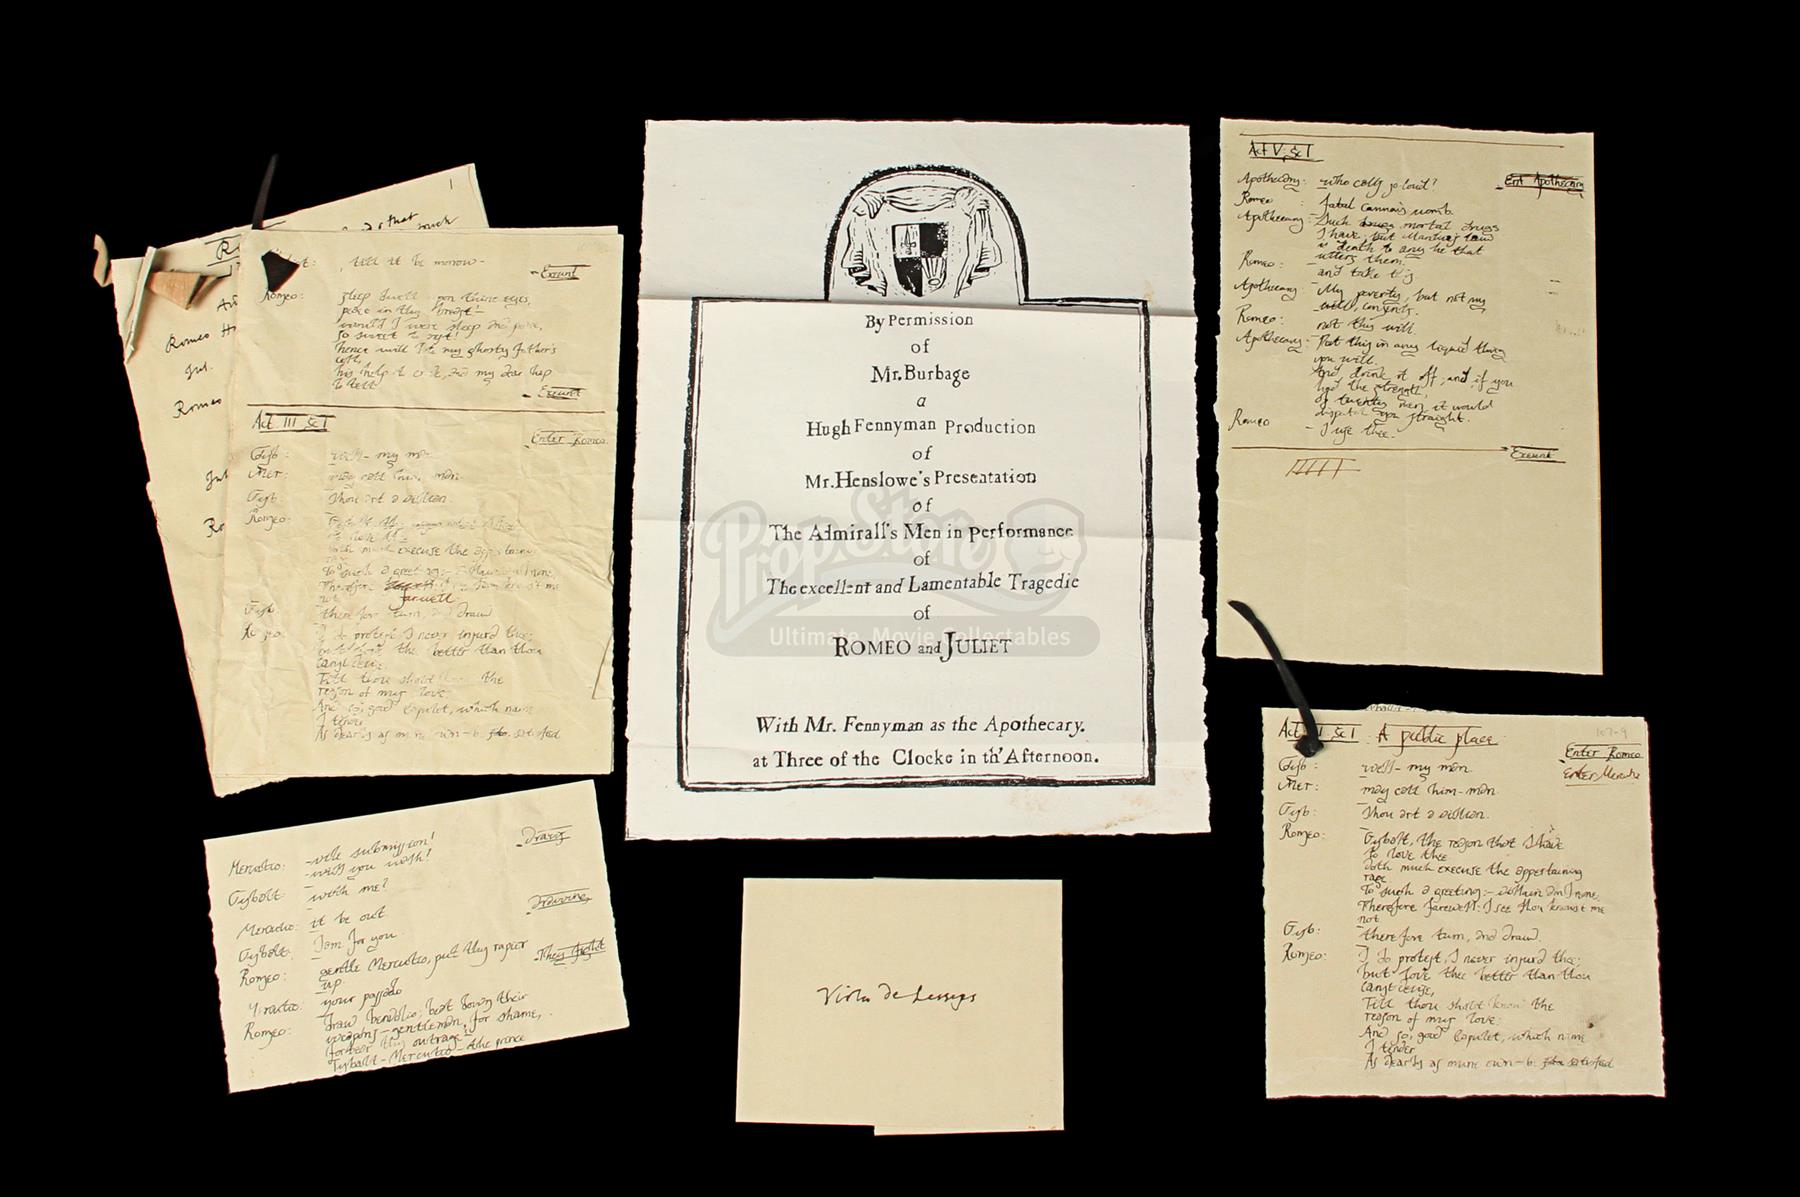 By Permission
of
Mr. Burbage
a
Hugh Fennyman Production
of
Mr. Henslowe's Presentation
of
The Admirall's Men in Performance
of
The excellent and Lamentable Tragedie
of
ROMEO and JULIET
With Mr. Fennyman as the Apothecary.
at Three of the Clocke in th' Afternoon.
Prop Store
Ultimate Movie Collectables
1
that
Romeo
Jul.
Romeo
till it be morrow -
Exeunt
Romeo: sleep dwell upon thine eyes,
peace in thy breast -
would I were sleep and peace,
so sweet to rest!
hence will I to my ghostly father's
cell,
his help to crave, and my dear hap
to tell.
Exeunt
Act III Sc I
Enter Romeo
Tyb: well - my man
Mer: may call him - man
Tyb: Thou art a villian.
Romeo:
doth much execuse the appertaining
To such a greeting:- villain am I none,
Therefore
not. farewell
Tyb: therefore turn, and draw
Romeo: I do protest, I never injur'd thee;
but love thee better than thou
canst devise,
Till thou shalt know the
reason of my love
And so, good Capulet, which name
I tender
As dearly as mine own - be satisfied
Mercutio: - vile submission!
- will you walk?
Draws
Tybolt: - with me?
Mercutio: it be out.
Drawing
Tybolt: I am for you.
Romeo: gentle Mercutio, put thy rapier
up.
They fight
Mercutio: your passado
Romeo: draw benvolio; beat down their
weapons - gentleman, for shame,
forbear this outrage!
Tybalt - Mercutio - the prince
Viola de Lesseps
Act V, Sc I
Ent Apothecary
Apothecary: - who calls so loud?
Romeo: fatal cannais womb.
Apothecary: - Such drugs mortal drugs
I have, but Mantua's law
is death to any he that
utters them.
Romeo: and take this
Apothecary: - My poverty, but not my
will, consents.
Romeo: not thy will
Apothecary: - Put this in any liquid thing
you will
And drink it off; and, if you
had the strength,
of twenty men it would
dispatch you straight.
Romeo - I use thee.
Exeunt
Act III Sc I A public place
107-9
Enter Romeo
Enter Mercutio
Tyb: well - my man
Mer: may call him - man
Tyb: Thou art a villian.
Romeo: Tybolt, the reason that I have
to love thee
doth much execuse the appertaining
rage
To such a greeting:- villain am I none,
Therefore farewell: I see thou knowst me
not
Tyb: therefore turn, and draw.
Romeo: I do protest, I never injur'd thee;
but love thee better than thou
canst devise,
Till thou shalt know the
reason of my love.
And so, good Capulet, which name
I tender
As dearly as mine own - be satisfied